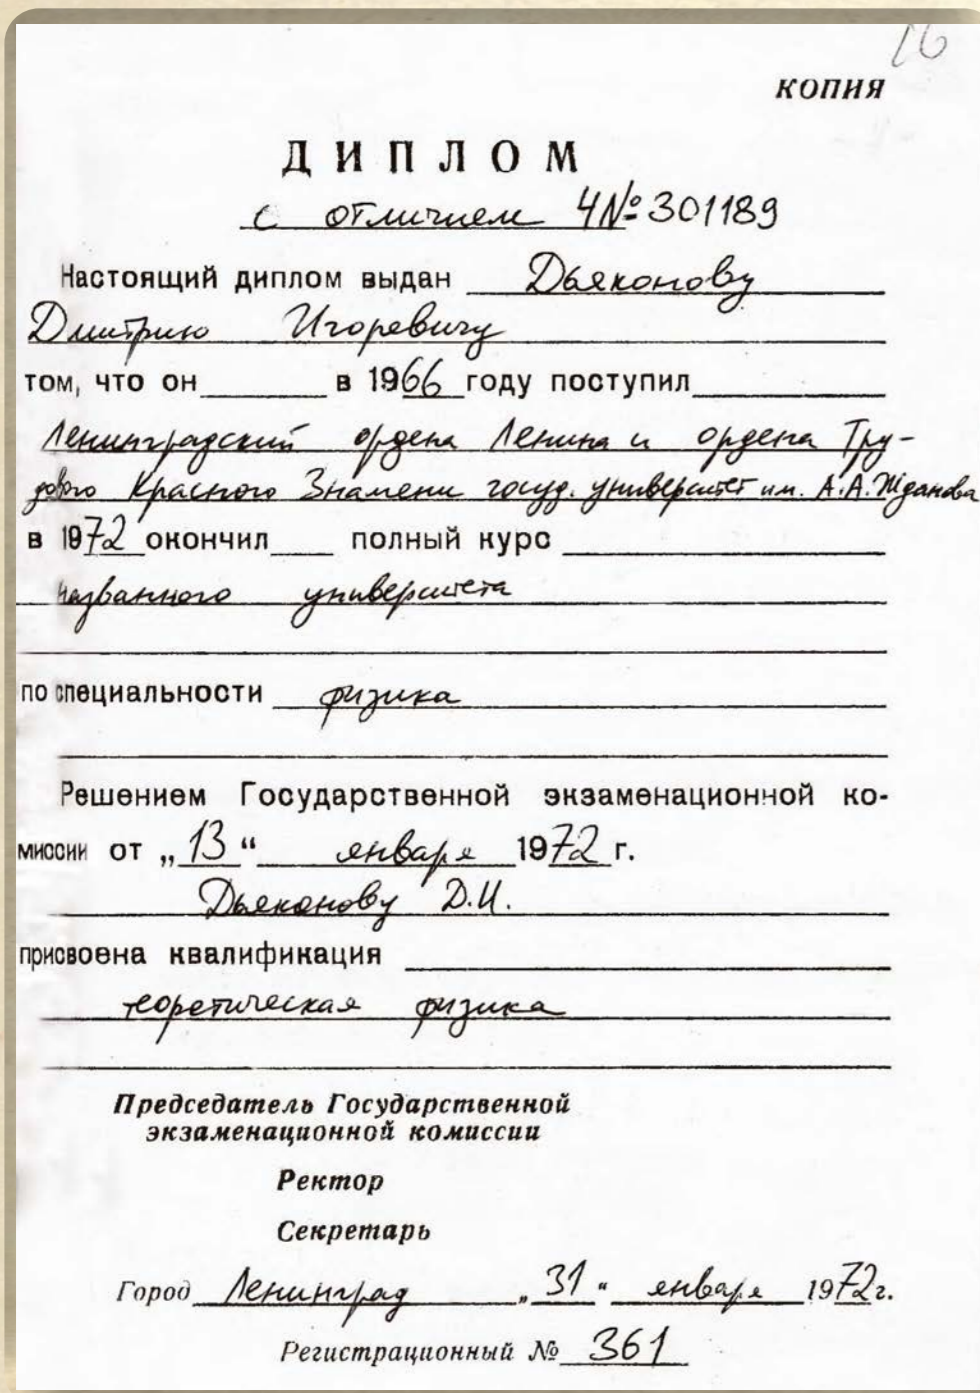 16
КОПИЯ
ДИПЛОМ
с отличием Ч№ 301189
Настоящий диплом выдан Дьяконову
Дмитрию Игоревичу
том, что он в 1966 году поступил
Ленинградский ордена Ленина и ордена Тру-
дового Красного Знамени госуд. университет им. А.А. Жданова
в 1972 окончил полный курс
названного университета
по специальности физика
Решением Государственной экзаменационной ко-
миссии от „13“ января 1972 г.
Дьяконову Д.И.
присвоена квалификация
теоретическая физика
Председатель Государственной
экзаменационной комиссии
Ректор
Секретарь
Город Ленинград „31“ января 1972г.
Регистрационный № 361